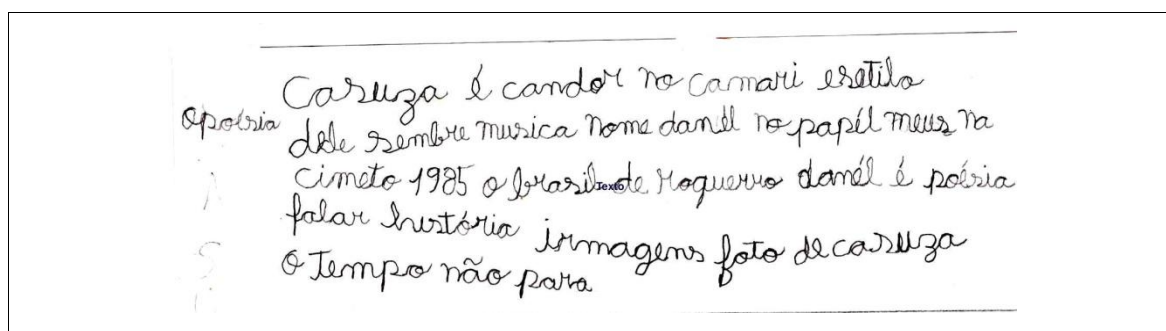 Casuza é candor no camari esetilo
apoésia
dele sembre musica nome danél no papél meus na
cimeto 1985 o brasil de roguerro danél é poésia
Texto
falar hustória irmagens foto de casuza
o Tempo não para